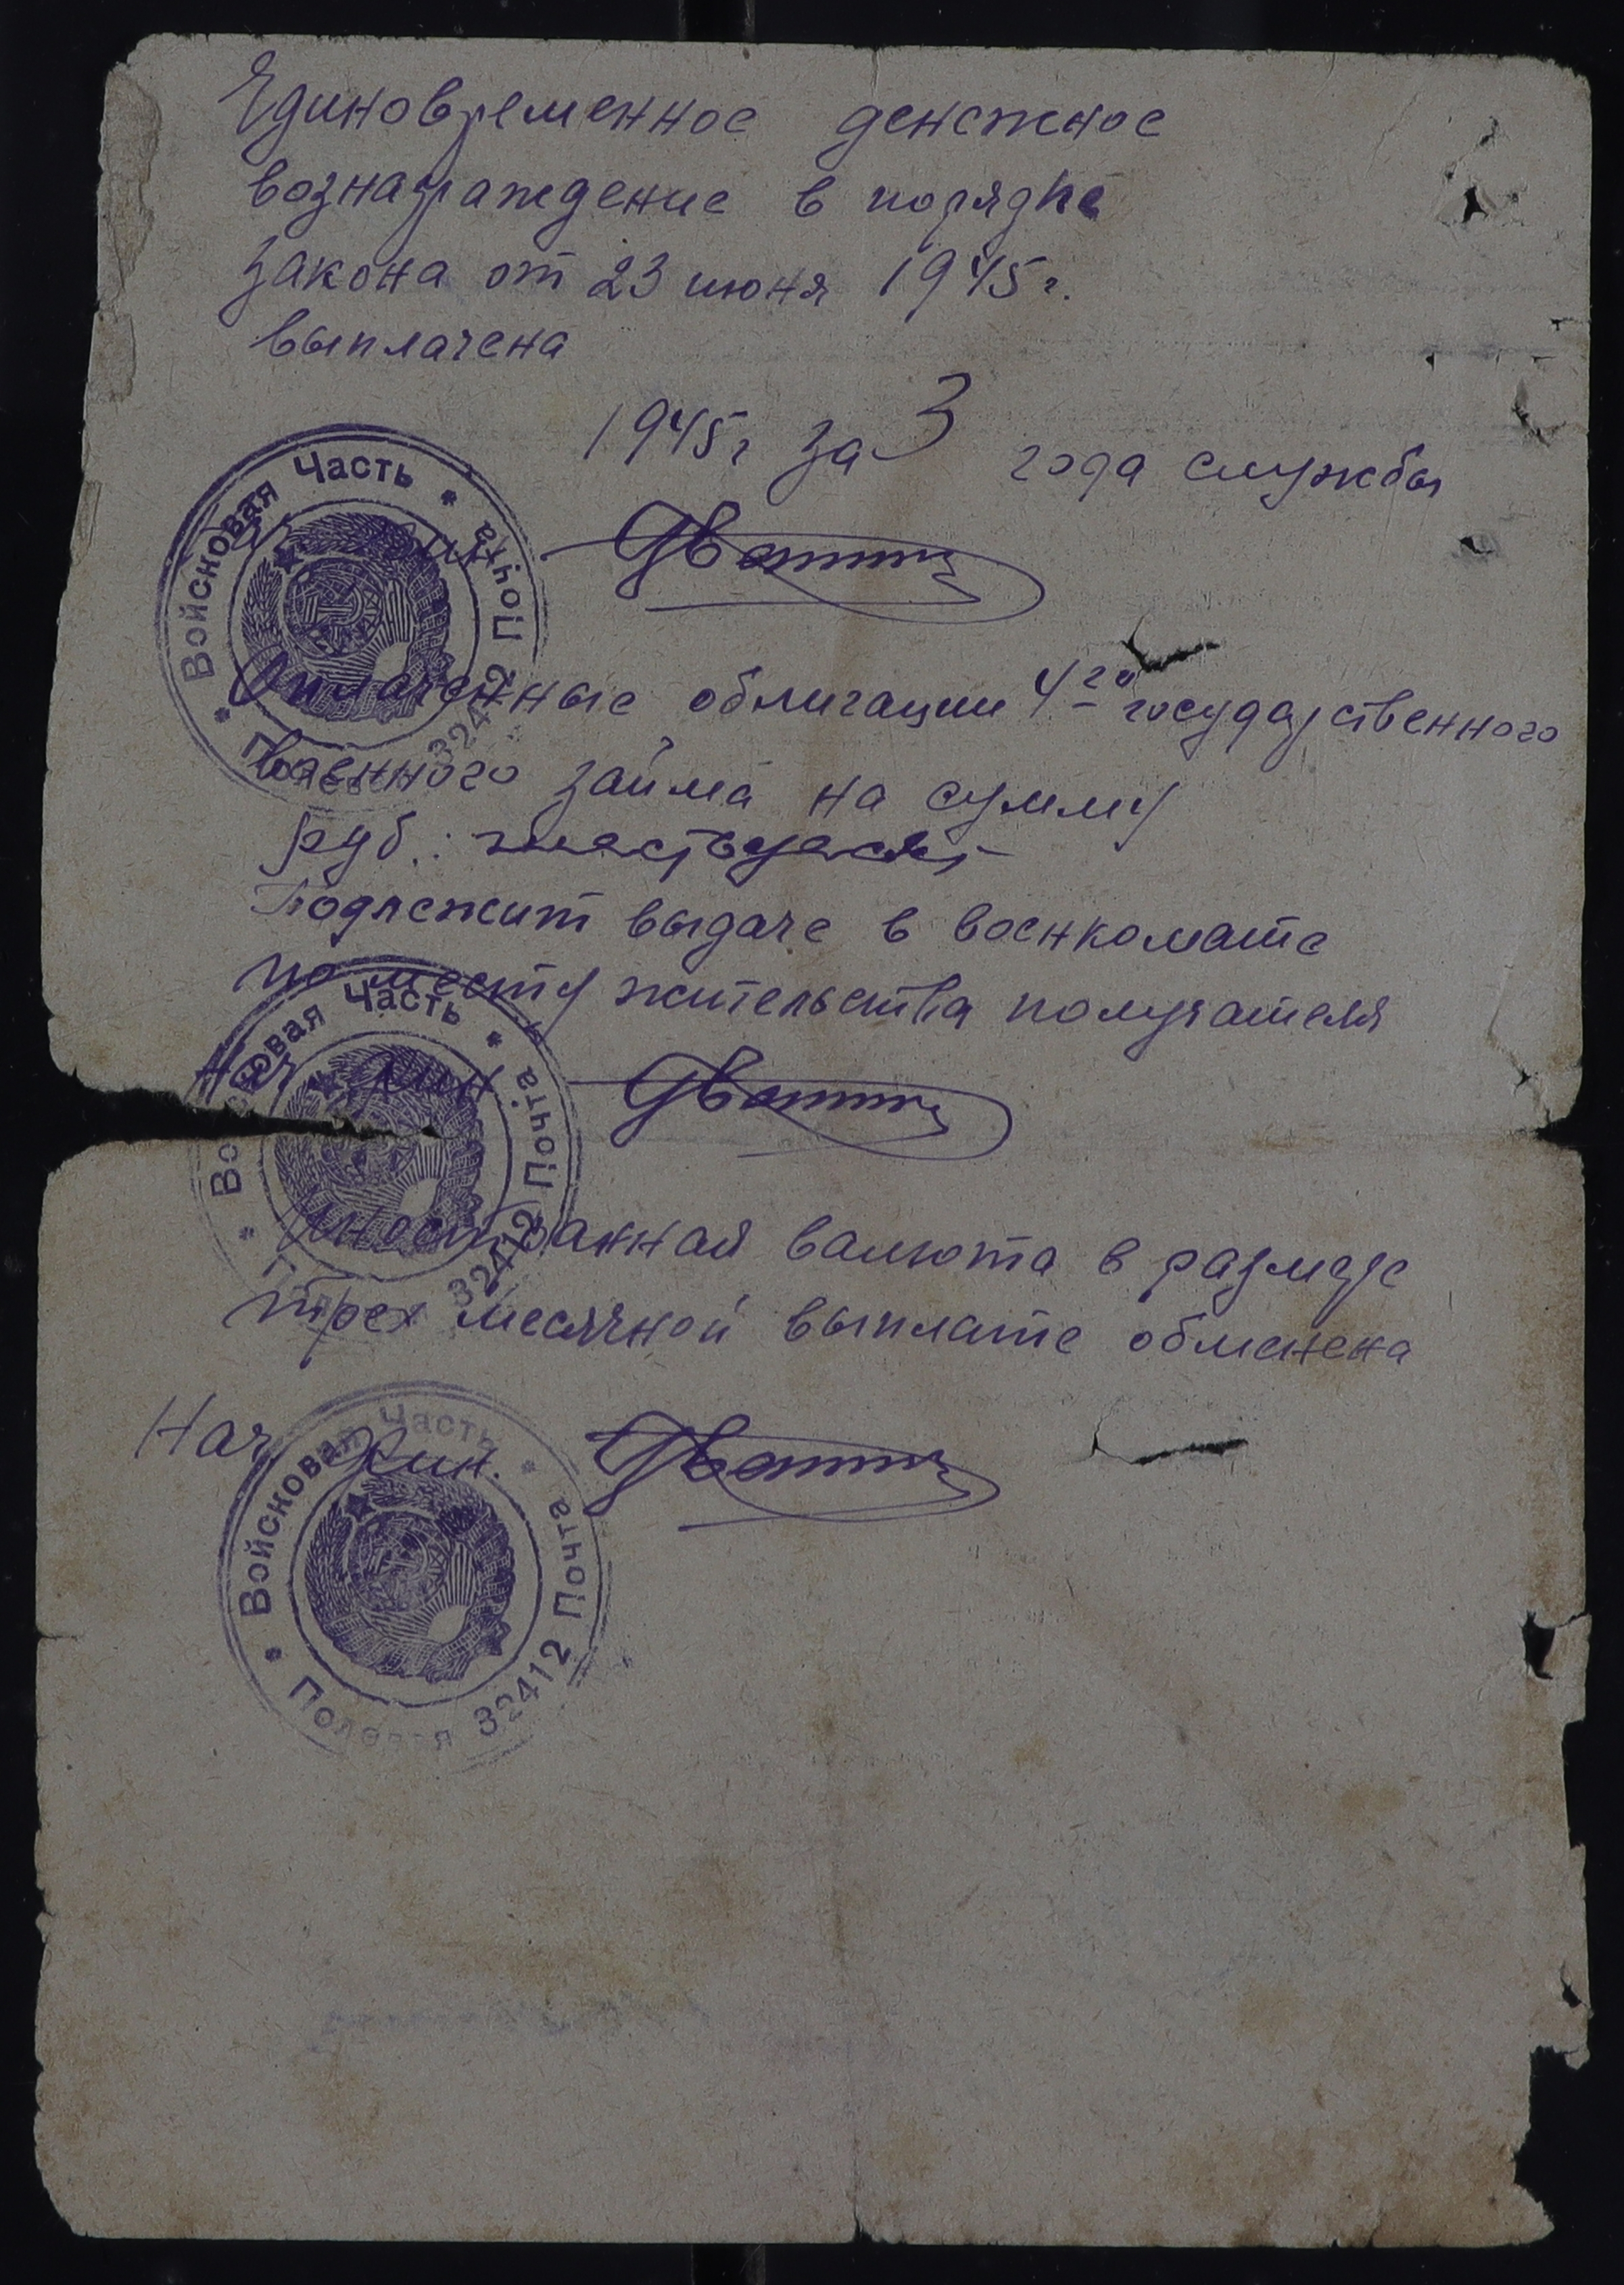 Единовременное денежное
вознаграждение в порядке
закона от 23 июня 1945 г.
выплачена
1945 г за 3 года службы
Войсковая Часть * Полевая Почта 32412 *
фин
Оплаченные облигации 4го государственного
военного займа на сумму
руб.:
Подлежит выдаче в военкомате
по месту жительства получателя
Войсковая Часть * Почта 32412 *
Нач фин
Иностранная валюта в размере
трех месячной выплате обменена
Нач фин.
Войсковая Часть * Полевая Почта 32412 *